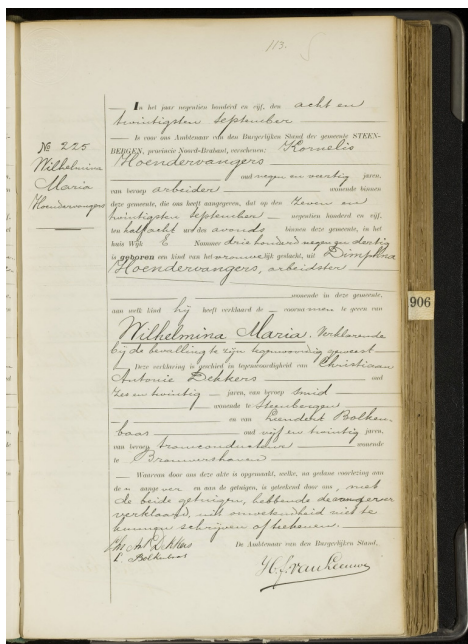 113.
In het jaar negentien honderd en vijf, den acht en
twintigsten September
Is voor ons Ambtenaar van den Burgerlijken Stand der gemeente STEEN-
BERGEN, provincie Noord-Brabant, verschenen: Kornelis
Hoendervangers
oud negen en veertig jaren,
van beroep arbeider wonende binnen
deze gemeente, die ons heeft aangegeven, dat op den zeven en
twintigsten September negentien honderd en vijf,
ten half acht ure des avonds binnen deze gemeente, in het
huis Wijk E Nummer drie honderd negen en dertig
is geboren een kind van het vrouwelijk geslacht, uit Dimphna
Hoendervangers, arbeidster
wonende in deze gemeente,
aan welk kind hij heeft verklaard de voornamen te geven van
Wilhelmina Maria. Verklarende
bij de bevalling te zijn tegenwoordig geweest
Deze verklaring is geschied in tegenwoordigheid van Christiaan
Antonie Dekkers oud
zes en twintig jaren, van beroep smid
wonende te Steenbergen
en van Leendert Bolken
baas oud vijf en twintig jaren,
van beroep tramconducteur wonende
te Brouwershaven
Waarvan door ons deze akte is opgemaakt, welke, na gedane voorlezing aan
de n aangever en aan de getuigen, is geteekend door ons, met
de beide getuigen, hebbende de aangever
verklaard, uit onwetendheid niet te
kunnen schrijven of teekenen.
De Ambtenaar van den Burgerlijken Stand,
Chr. Ant. Dekkers
L. Bolkenbaas
H. J. van Leeuwen
№ 225
Wilhelmina
Maria
Hoendervangers
906